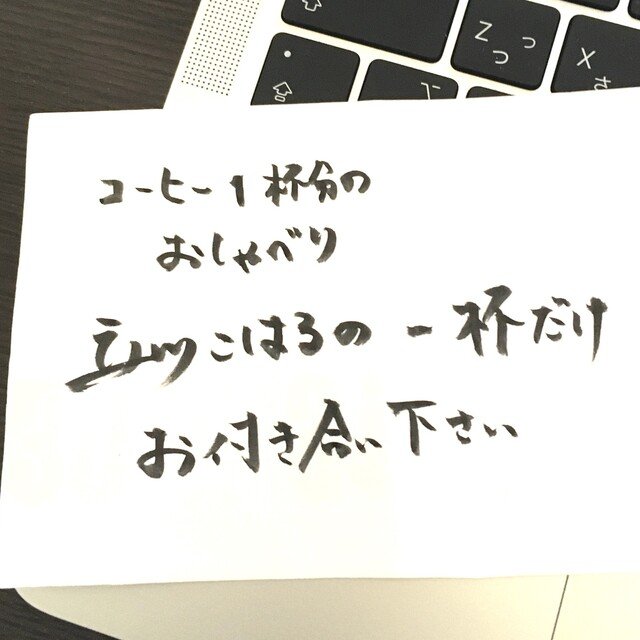 Z っ
つ
X
さ
コーヒー1杯分の
おしゃべり
立川こはるの一杯だけ
お付き合い下さい